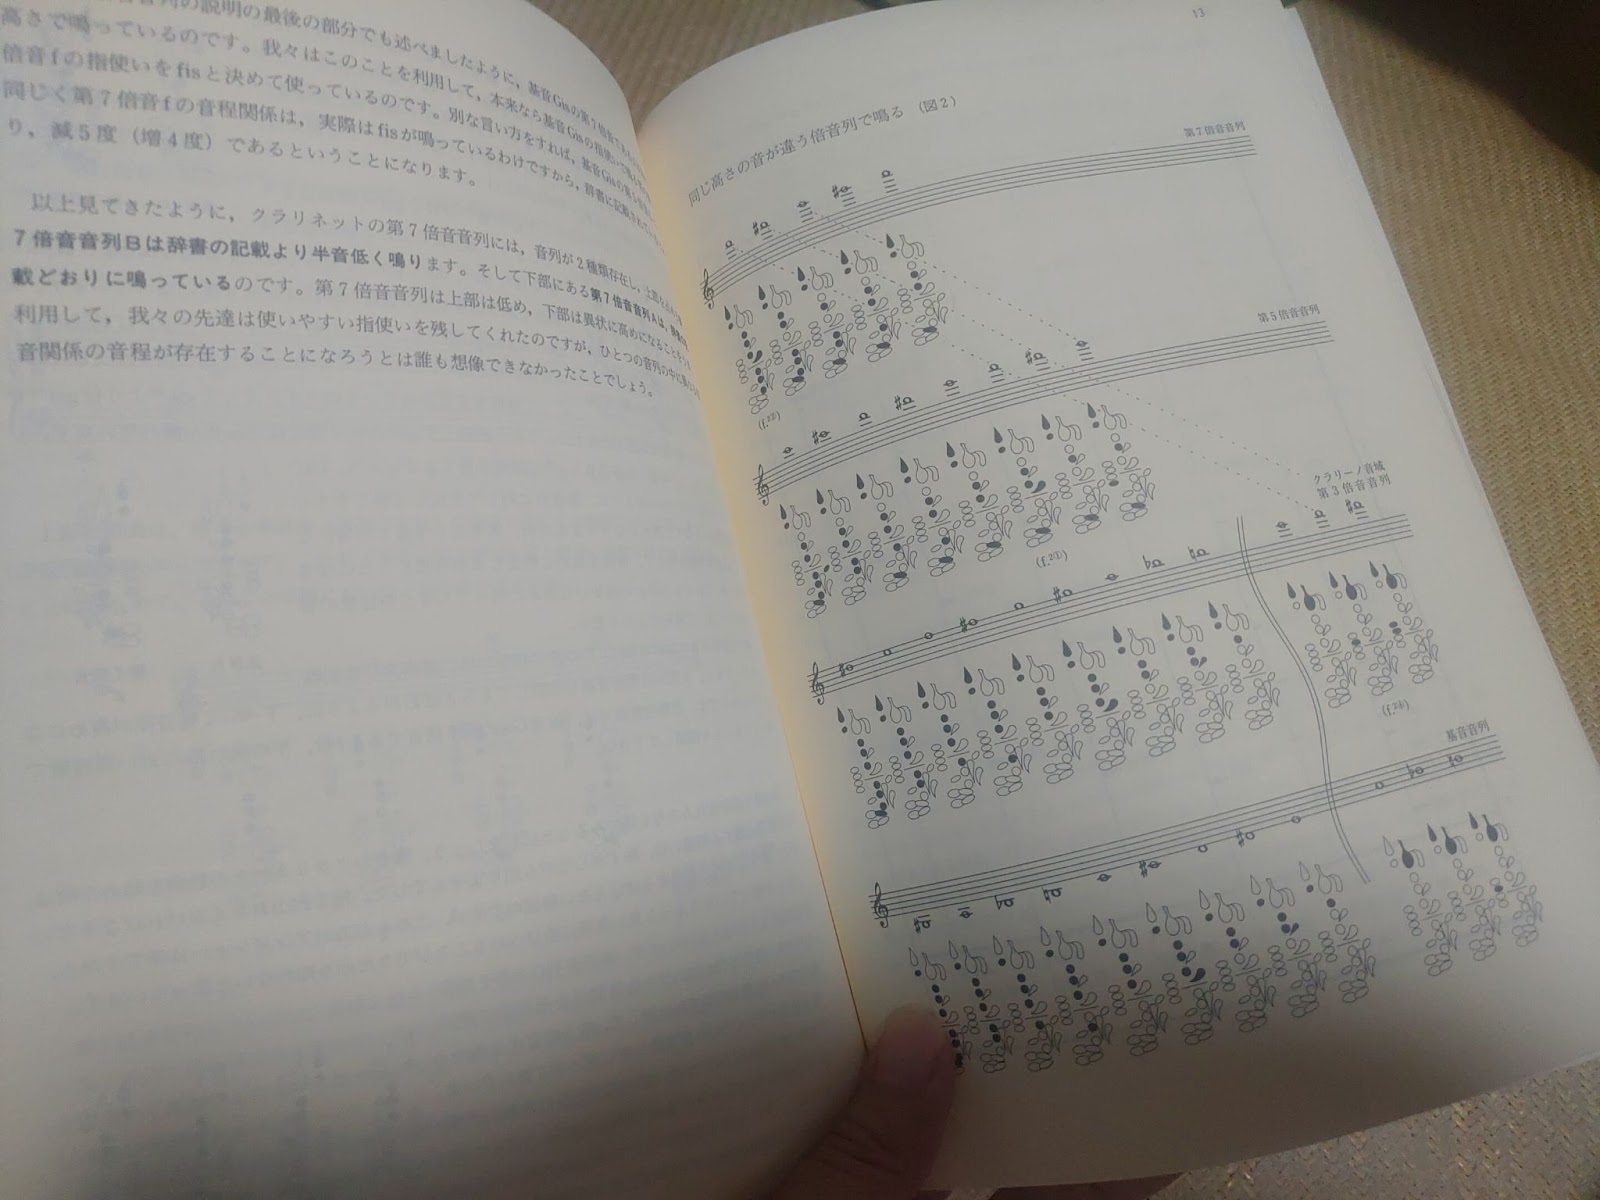 音列の説明の最後の部分でも述べましたように，基音Gisの第7倍音で
高さで鳴っているのです。我々はこのことを利用して，本来なら基音Gisの指使いで
倍音fの指使いをfisと決めて使っているのです。別な言い方をすれば，基音Gisの第
同じく第7倍音fの音程関係は，実際はfisが鳴っているわけですから，辞書に記載され
り，減5度（増4度）であるということになります。
以上見てきたように，クラリネットの第7倍音音列には，音列が2種類存在し，
7倍音音列Bは辞書の記載より半音低く鳴ります。そして下部にある第7倍音音列Aは，
載どおりに鳴っているのです。第7倍音音列は上部は低め，下部は異状に高めになることを
利用して，我々の先達は使いやすい指使いを残してくれたのですが，ひとつの音列の中に
音関係の音程が存在することになろうとは誰も想像できなかったことでしょう。
13
同じ高さの音が違う倍音列で鳴る （図2）
第7倍音音列
(f.2②)
第5倍音音列
(f.2①)
クラリーノ音域
第3倍音音列
基音音列